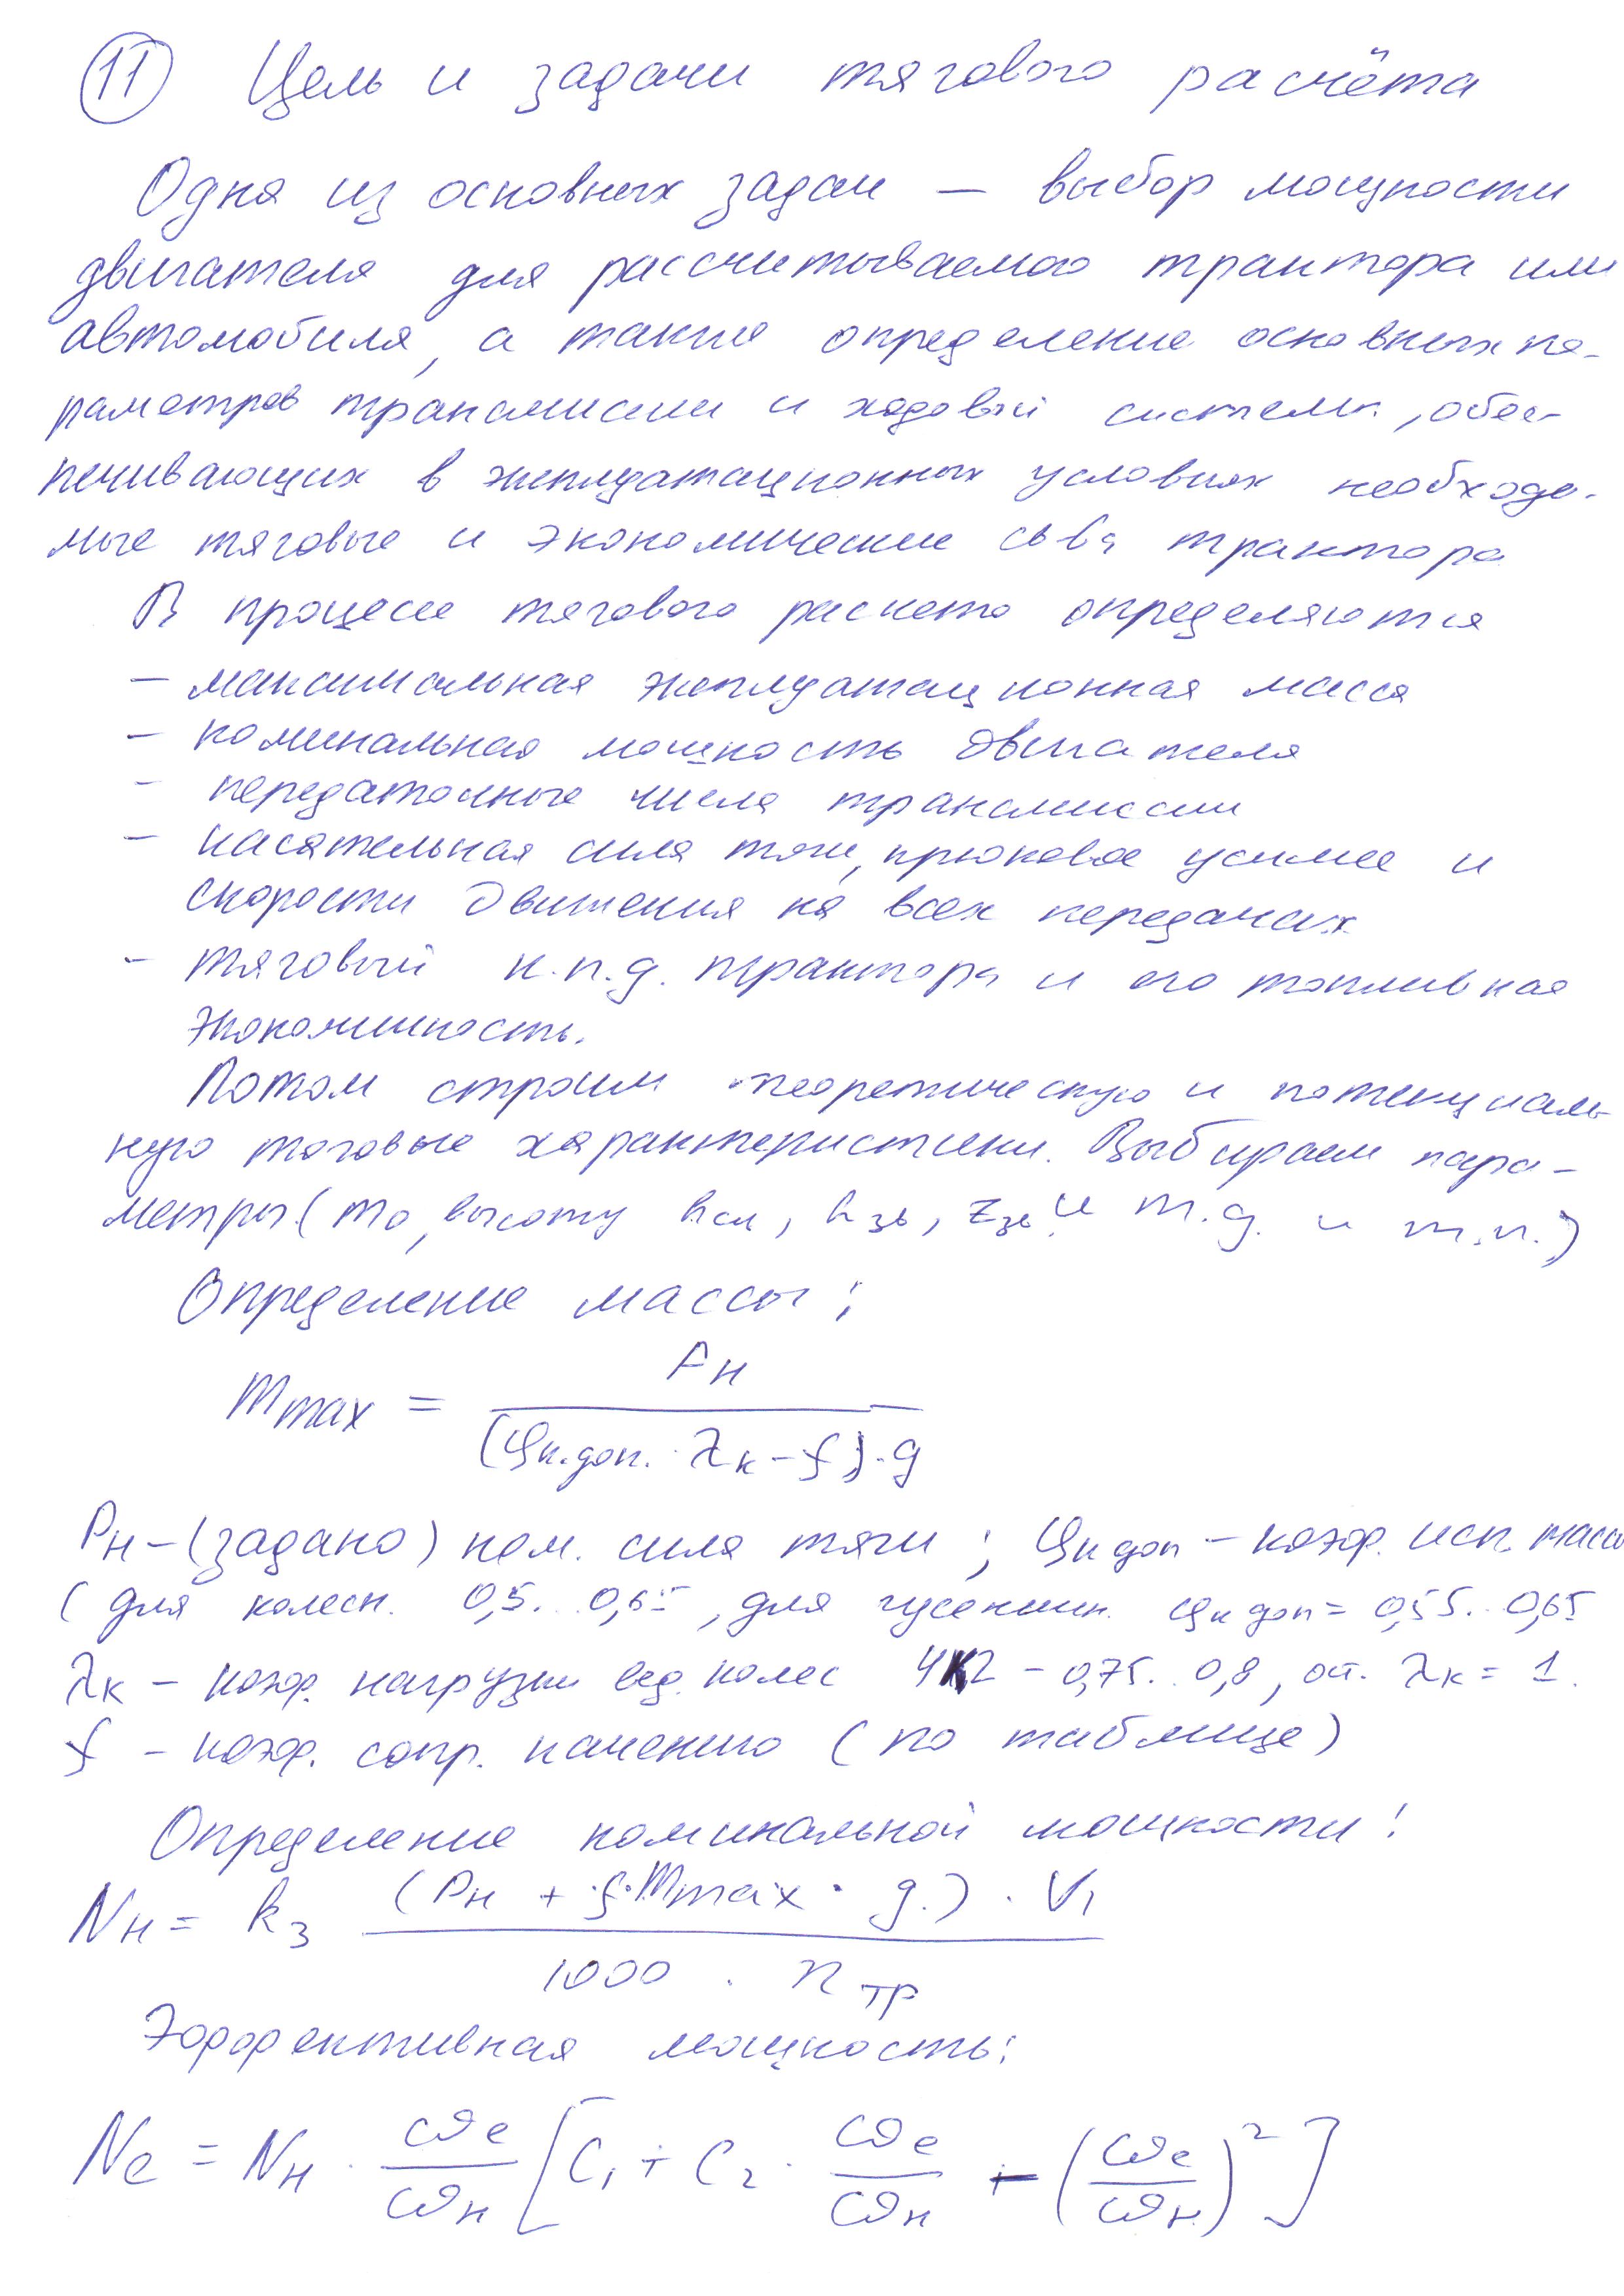 11 Цель и задачи тягового расчёта
Одна из основных задач — выбор мощности
двигателя для рассчитываемого трактора или
автомобиля, а также определение основных па-
раметров трансмиссии и ходовой системы, обес-
печивающих в эксплуатационных условиях необходи-
мые тяговые и экономические св-ва трактора
В процессе тягового расчета определяются
— максимальная эксплуатационная масса
- номинальная мощность двигателя
- передаточные числа трансмиссии
- касательная сила тяги, крюковое усилие и
скорости движения на всех передачах
- тяговый к.п.д. трактора и его топливная
экономичность.
Потом строим теоретическую и потенциаль
ную тяговые характеристики. Выбираем пара-
метры (m₀, высоту hсм, hзв, zзв и т.д. и т.п.)
Определение массы:
m max = Pн / ((φк.доп. · λк - f) · g)
Pн - (задано) ном. сила тяги; φк доп - коэф. исп. массы
(для колесн. 0,5..0,65, для гусеничн. φк доп = 0,55..0,65
λк - коэф. нагрузки вед. колес 4К2 - 0,75..0,8, ост. λк = 1.
f - коэф. сопр. качению (по таблице)
Определение номинальной мощности:
Nн = kз (Pн + f · m max · g) · V₁ / (1000 · ηтр)
Эффективная мощность:
Ne = Nн · ωe/ωн [C₁ + C₂ · ωe/ωн - (ωe/ωн)²]